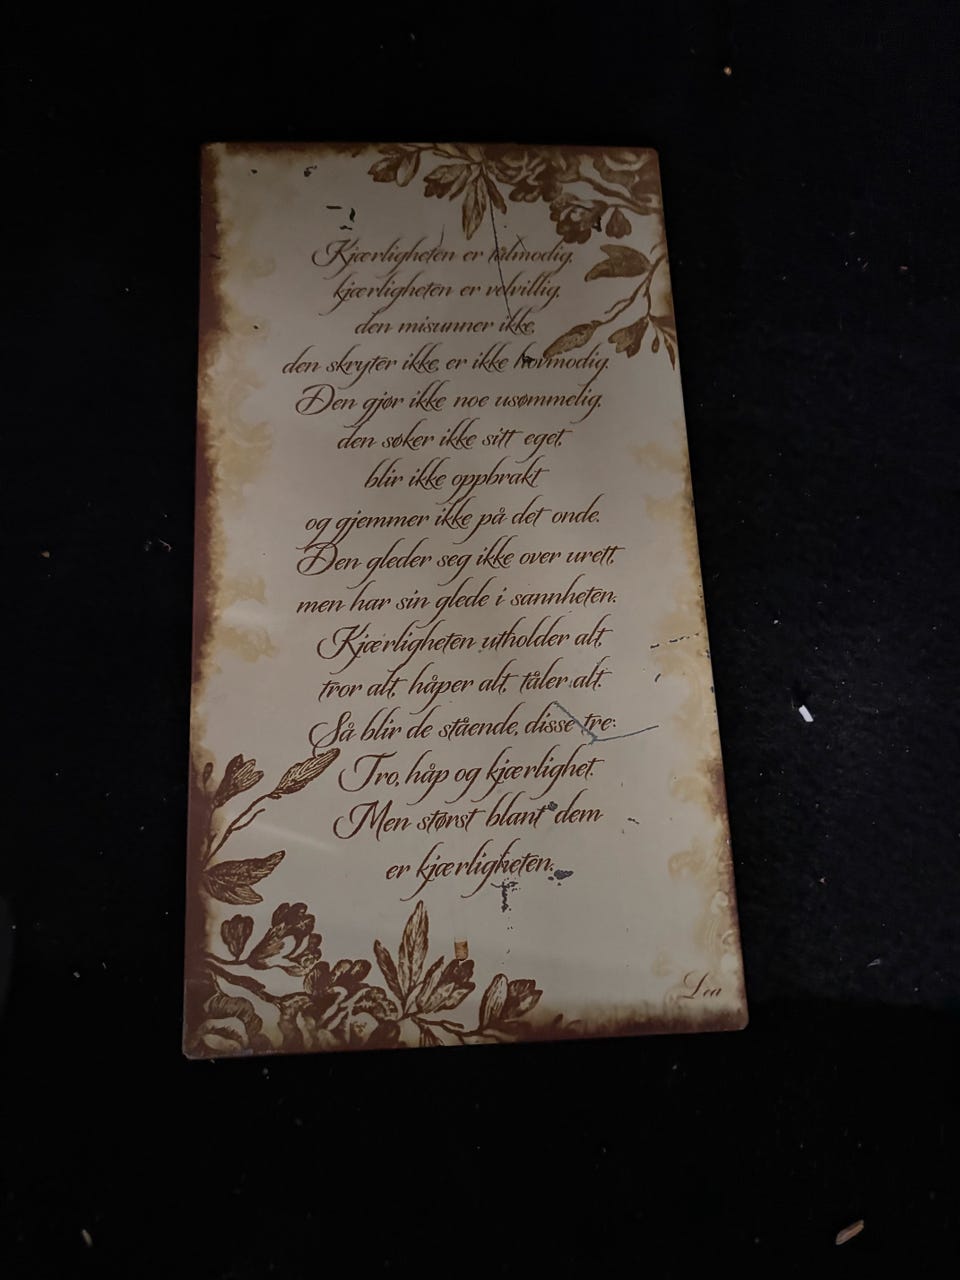 Kjærligheten er tålmodig,
kjærligheten er velvillig,
den misunner ikke,
den skryter ikke, er ikke hovmodig.
Den gjør ikke noe usømmelig,
den søker ikke sitt eget,
blir ikke oppbrakt
og gjemmer ikke på det onde.
Den gleder seg ikke over urett,
men har sin glede i sannheten.
Kjærligheten utholder alt,
tror alt, håper alt, tåler alt.
Så blir de stående, disse tre:
Tro, håp og kjærlighet.
Men størst blant dem
er kjærligheten.
Lea